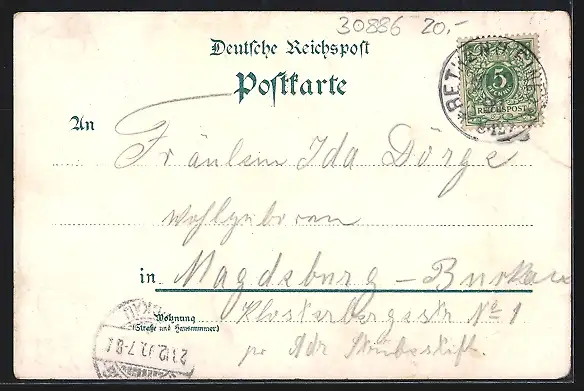 30886 20.-
Deutsche Reichspost
Postkarte
5
REICHSPOST
An
Fräulein Ida Dörge
Wohlgeboren
in Magdeburg – Buckau
Wohnung
(Straße und Hausnummer)
Klosterbergestr No 1
pr Adr